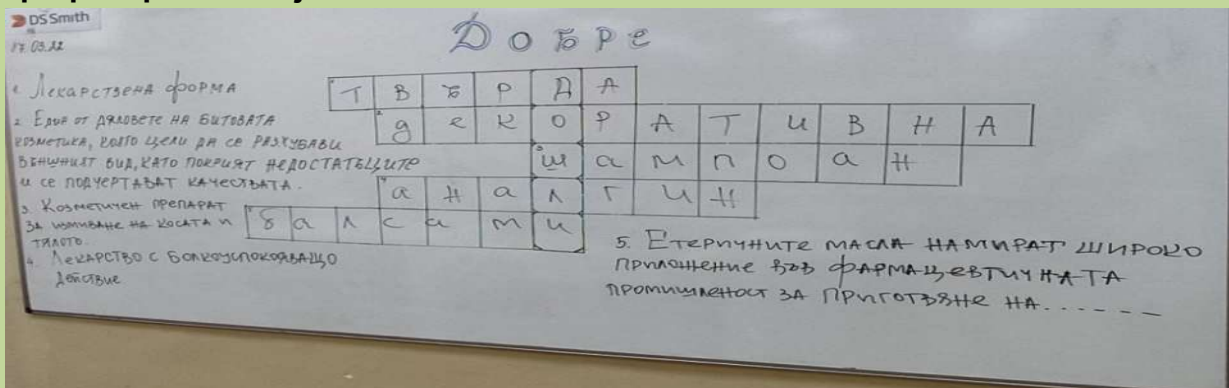 DS Smith
17.03.22
Добре
1. Лекарствена форма
2. Един от дяловете на битовата
козметика, който цели да се разхубави
външният вид, като покрият недостатъците
и се подчертават качествата.
3. Козметичен препарат
за измиване на косата и
тялото.
4. Лекарство с болкоуспокояващо
действие
ТВЪРДА
декоративна
шампоан
аналгин
балсами
5. Етеричните масла намират широко
приложение във фармацевтичната
промишленост за приготвяне на......